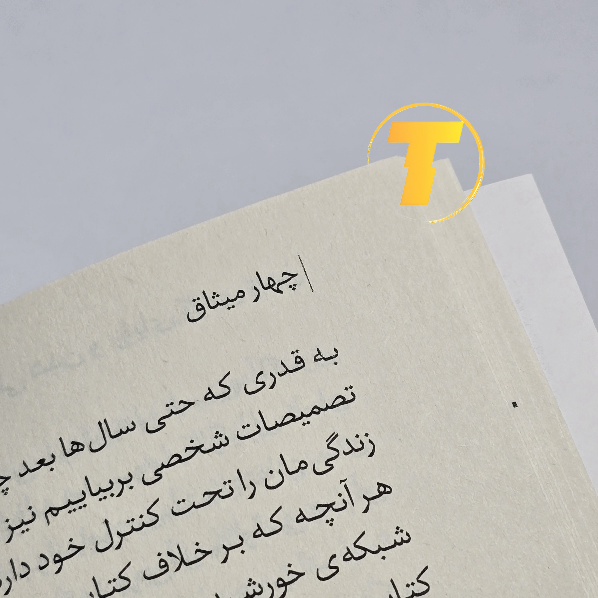 T
چهار میثاق
به قدری که حتی سال‌ها بعد
تصمیصات شخصی بربیاییم نیز
زندگی‌مان را تحت کنترل خود
هر آنچه که بر خلاف کتاب
شبکه‌ی
کتاب